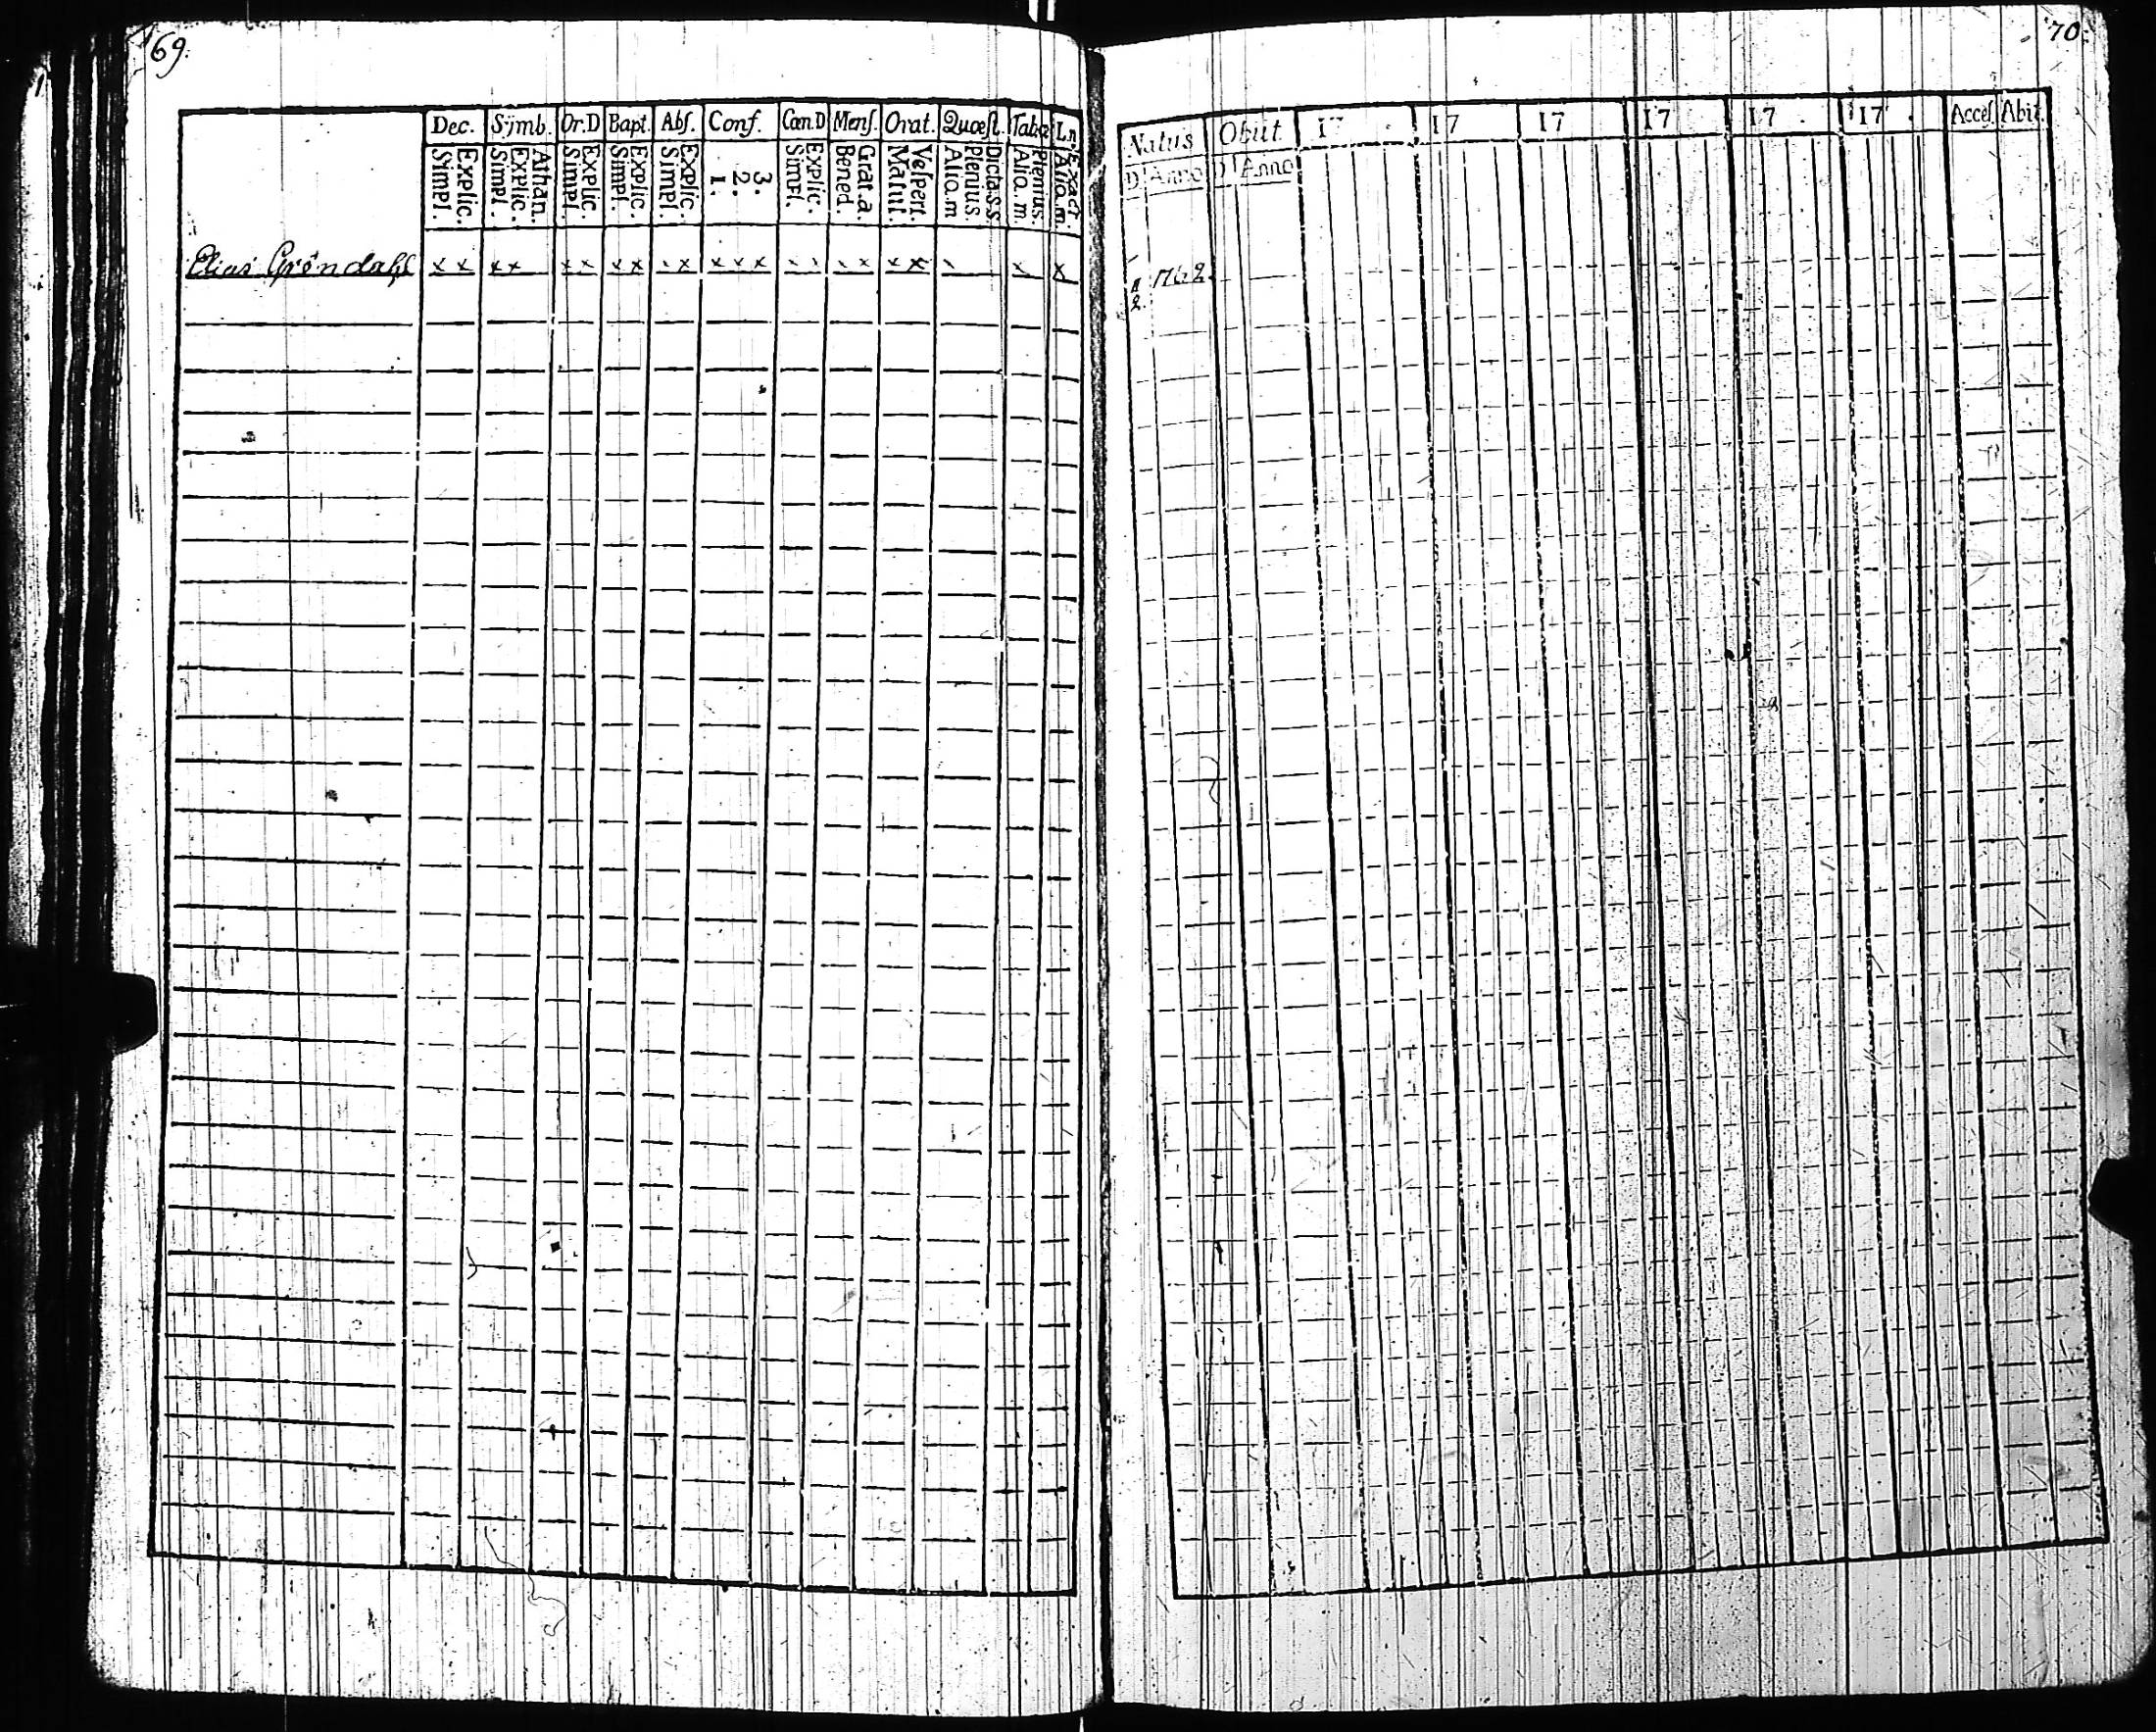 69.
Dec. Symb. Or.D Bapt. Abſ. Conf. Cœn.D Menſ. Orat. Quœſt. Tab.œ
Simpl. Explic. Simpl. Explic. Athan. Simpl. Explic. Simpl. Explic. Simpl. Explic. 1. 2. 3. Simpl. Explic. Bened. Grat.a. Matut. Veſpert. Aliq.m Plenius. Dicta.s.s. Aliq.m. Plenius. Aliq.m. Exact
Elias Gröndahl x x x x x x x x x x x x x x x x x x x x x
70.
Natus Obiit 17 17 17 17 17 17 Acceſ. Abit.
D Anno D Anno
1762